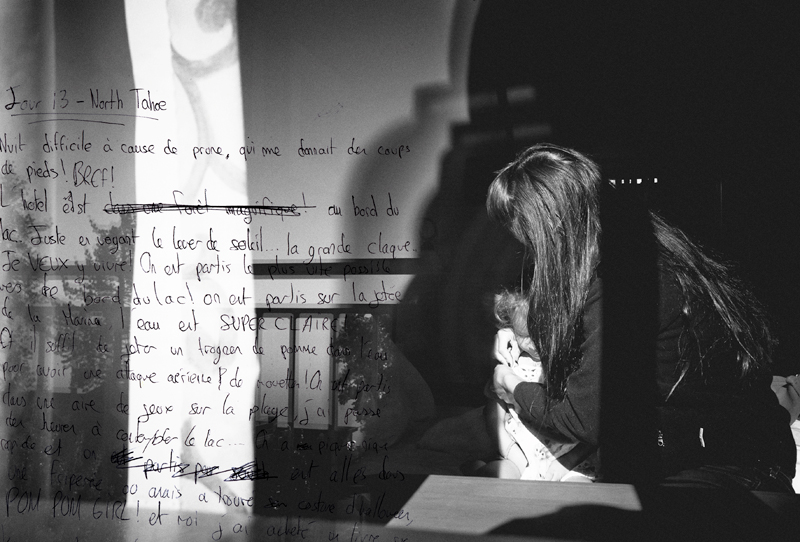 Jour 13 - North Tahoe
Nuit difficile à cause de prune, qui me donnait des coups
de pieds! BREF!
L'hotel est dans une forêt magnifique! au bord du
lac. Juste en voyant le lever de soleil... la grande claque.
Je VEUX y vivre! On est partis le plus vite possible
vers le bord du lac! on est partis sur la jetée
de la Marina l'eau est SUPER CLAIRE
Et il suffit de jeter un trognon de pomme dans l'eau
pour avoir une attaque aérienne de mouettes! On est parti
dans une aire de jeux sur la plage, j'ai passé
des heures à contempler le lac... On a
et on partis par est allés dans
une friperie ou anais a trouvé son costume d'halloween,
POM POM GIRL! et moi j'ai acheté un livre